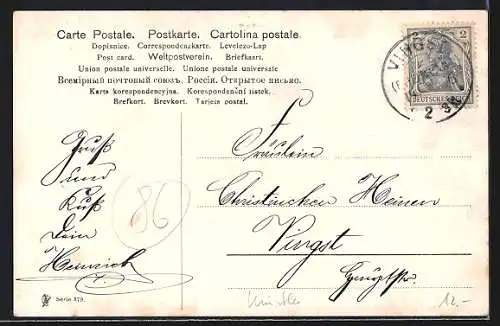 Carte Postale. Postkarte. Cartolina postale.
Dopisnice. Correspondenzkarte. Levelezo-Lap
Post card. Weltpostverein. Briefkaart.
Union postale universelle. Unione postale universale
Всемірный почтовый союзъ. Россія. Открытое письмо.
Karta korespondencyjna. Korespondenční listek.
Brefkort. Brevkort. Tarjeta postal.
VINGST
2
DEUTSCHES REICH
Gruß
und
Kuß
Dein
Heinrich
86
Fräulein
Christinchen Heinen
Vingst
Hauptstr.
Serie 379.
Künstler
12,-